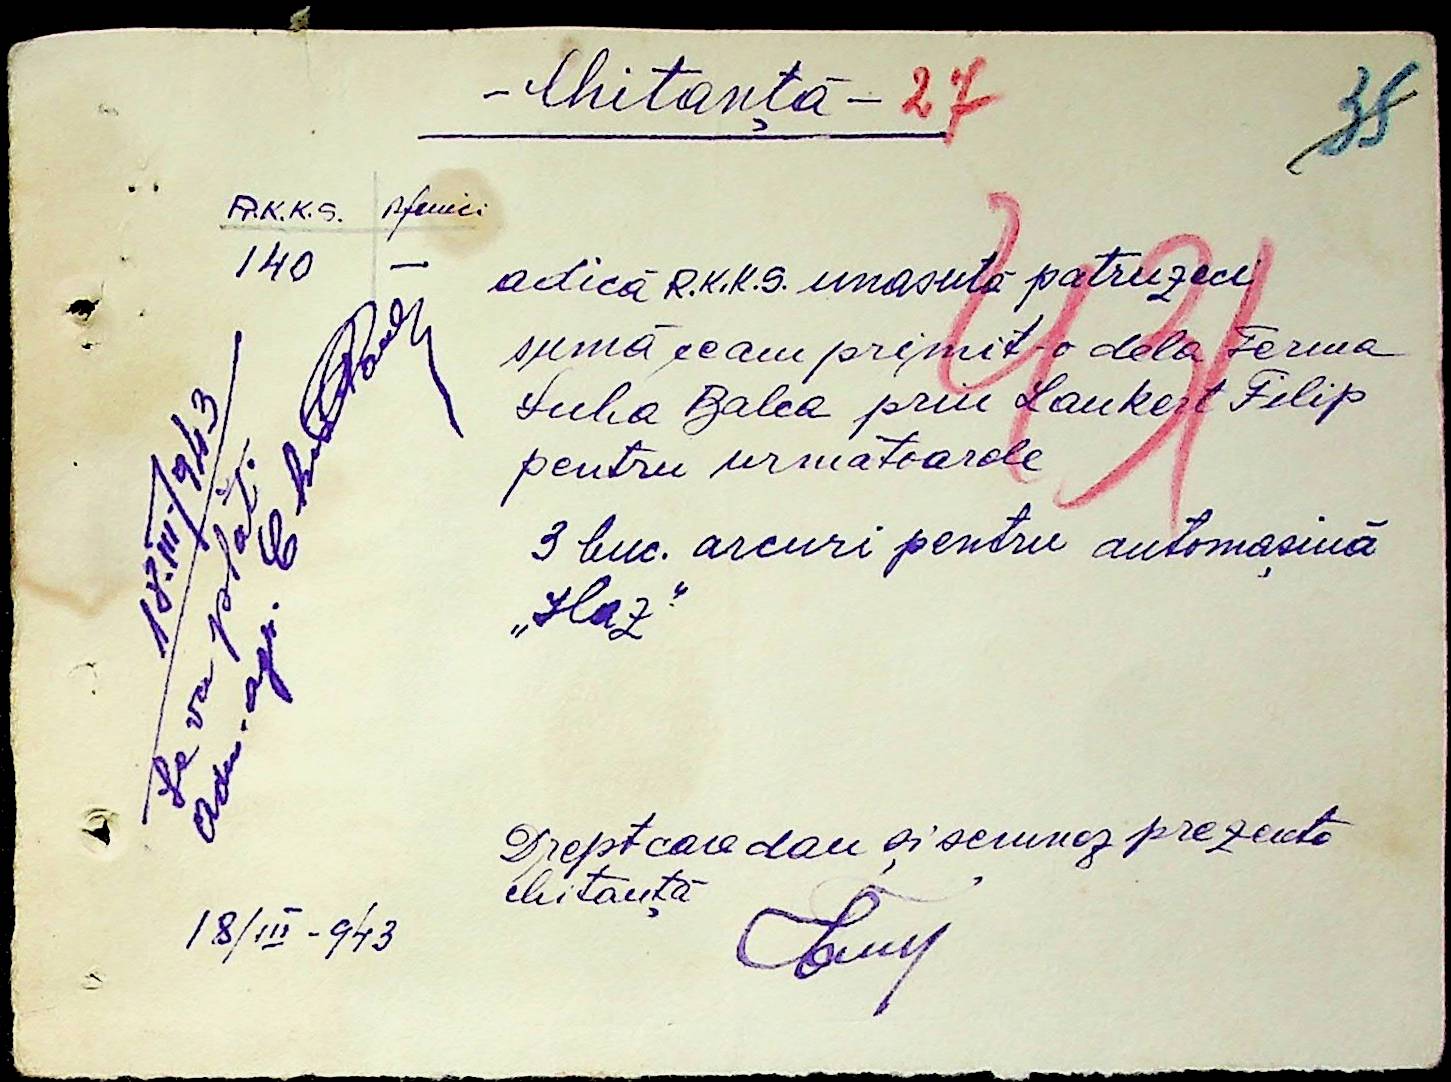 - Chitanță - 27
35
R.K.K.S. Pfenici
140 —
adică R.K.K.S. unasută patruzeci
sumă ce am primit-o dela Ferma
Suha Balca prin Lankert Filip
pentru urmatoarele
3 buc. arcuri pentru automașină
„Haz"
431
18.III/943
Se va plăt.
Adm. agr.
Drept care dau și semnez prezenta
chitanță
18/III-943